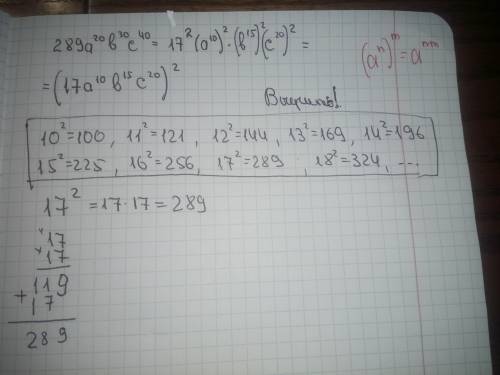 289a²⁰b³⁰c⁴⁰ = 17²(a¹⁰)²·(b¹⁵)²(c²⁰)² =
= (17a¹⁰b¹⁵c²⁰)²
(aⁿ)ᵐ = aⁿᵐ
Выучить!
10²=100, 11²=121, 12²=144, 13²=169, 14²=196
15²=225, 16²=256, 17²=289, 18²=324, ...
17² = 17·17 = 289
17
17
119
+17
289